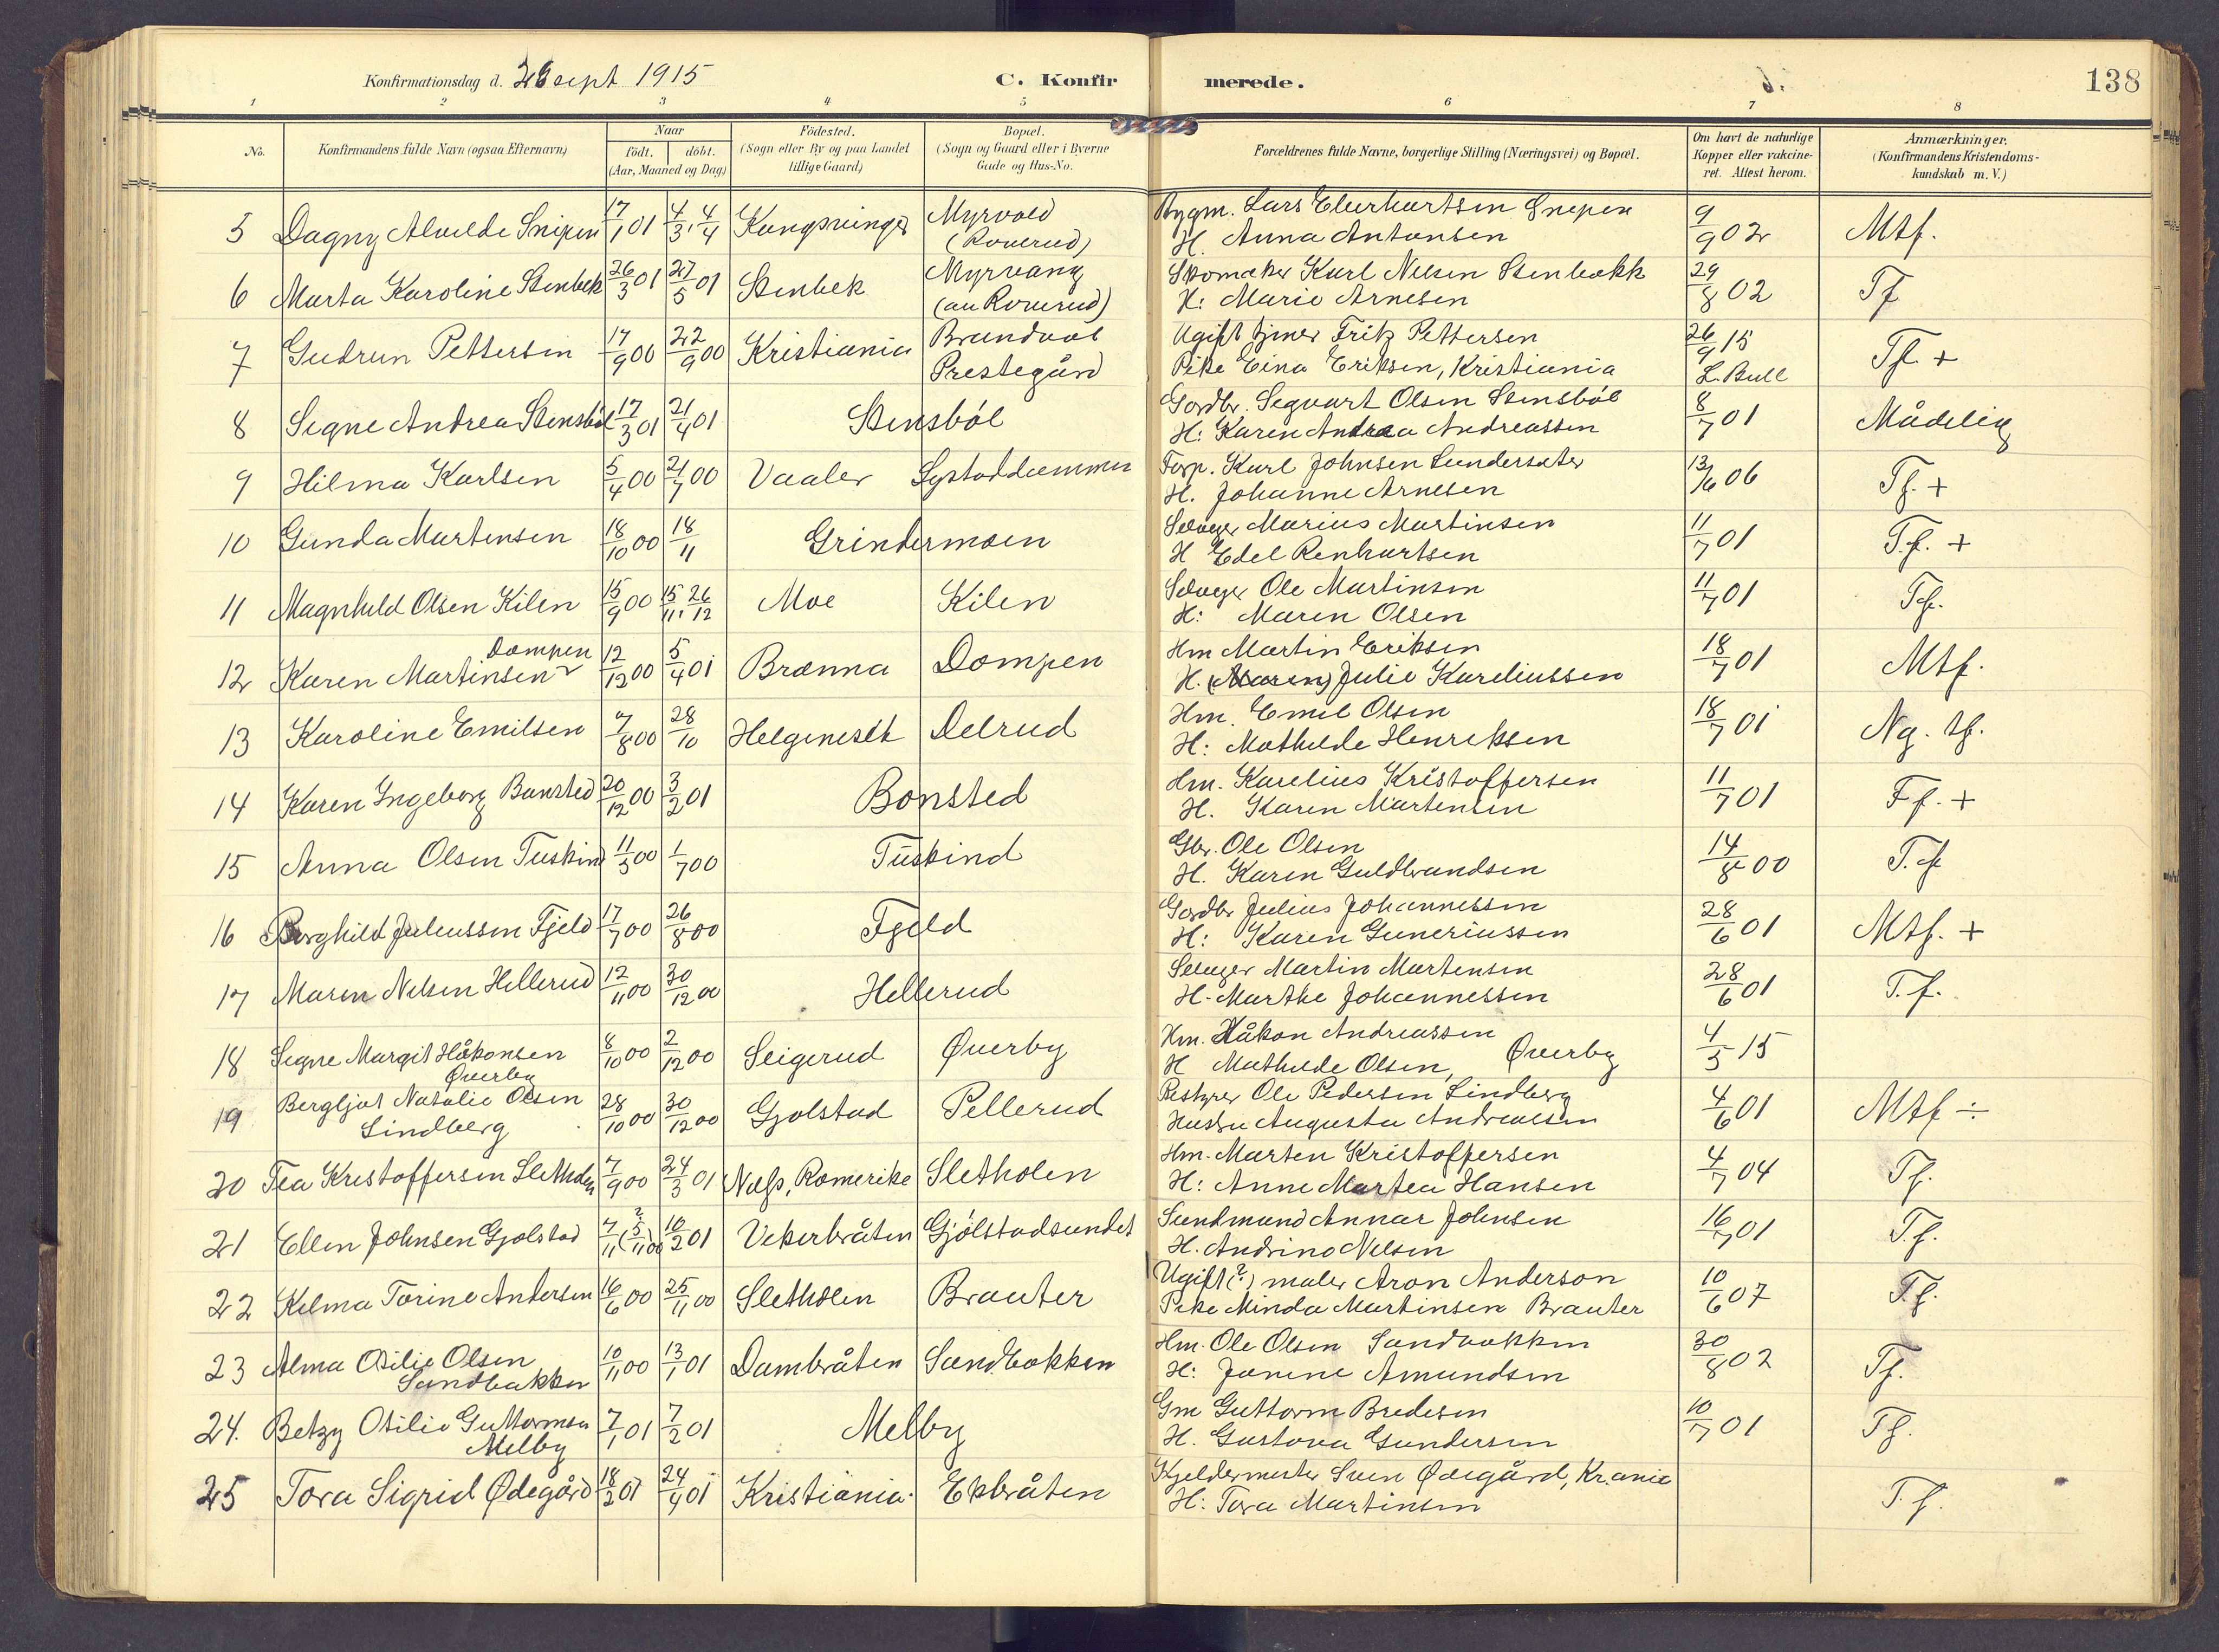 Konfirmationsdag d. 26 sept 1915
C. Konfirmerede.
138
1 2 3 4 5 6 7 8
No.
Konfirmandens fulde Navn (ogsaa Efternavn)
Naar
födt. döbt.
(Aar, Maaned og Dag)
Födested.
(Sogn eller By og paa Landet
tillige Gaard)
Bopæl.
(Sogn og Gaard eller i Byerne
Gade og Hus-No.
Forældrenes fulde Navne, borgerlige Stilling (Næringsvei) og Bopæl.
Om havt de naturlige
Kopper eller vakcine-
ret. Attest herom.
Anmærkninger.
(Konfirmandens Kristendoms-
kundskab m. V.)
5 Dagny Alvilde Snipen 17/1 01 4/3, 4/4 Kongsvinger Myrvold (Roverud) Bygm. Lars Everhartsen Snepen 9/9 02 Mtf.
H. Anna Antonsen
6 Marta Karoline Stenbek 26/3 01 27/5 01 Stenbek Myrvang (au Roverud) Skomaker Karl Nilsen Stenbækk 29/8 02 Tf
H: Marie Arnesen
7 Gudrun Pettersen 17/9 00 22/9 00 Kristiania Brandval Prestegård Ugift tjener Fritz Pettersen 26/9 15 L. Bull Tf. +
Pike Eina Eriksen, Kristiania
8 Signe Andrea Stensbøl 17/3 01 21/4 01 Stensbøl Gardbr. Segvart Olsen Stensbøl 8/7 01 Mådelig
H: Karen Andrea Andreassen
9 Hilma Karlsen 5/4 00 21/7 00 Vaaler Systaddammen Torp. Karl Johnsen Sundersæter 13/6 06 Tf. +
H. Johanne Arnesen
10 Gunda Martensen 18/10 00 18/11 Grindermoen Selveger Marius Martinsen 11/7 01 T.f. +
H Edel Renhartsen
11 Magnhild Olsen Kilen 15/9 00 15/11, 26/12 Moe Kilen Selveger Ole Martinsen 11/7 01 Tf.
H: Maren Olsen
12 Karen Martinsen Dompen 12/12 00 5/4 01 Brænna Dompen Hm Martin Eriksen 18/7 01 Mtf.
H. (Maren) Julie Kareliussen
13 Karoline Emilsen 7/8 00 28/10 Helgeneset Delrud Hm. Emil Olsen 18/7 01 Ng. tf.
H: Mathilde Henriksen
14 Karen Ingeborg Bonsted 20/12 00 3/2 01 Bonsted Hm. Karelius Kristoffersen 11/7 01 Tf. +
H. Karen Martensen
15 Anna Olsen Tuskind 11/5 00 1/7 00 Tuskind Gbr. Ole Olsen 14/8 00 T.f
H. Karen Guldbrandsen
16 Borghild Juliussen Fjeld 17/7 00 26/8 00 Fjeld Gardbr Julius Johannessen 28/6 01 Mtf. +
H: Karen Guneriussen
17 Maren Nilsen Hellerud 12/11 00 30/12 00 Hellerud Selveger Martin Martensen 28/6 01 T.f.
H. Marthe Johannessen
18 Signe Margit Håkonsen Øverby 8/10 00 2/12 00 Seigerud Øverby Hm. Håkon Andreassen 4/5 15
H Mathilde Olsen, Øverby
19 Bergljot Natalie Olsen Lindberg 28/10 00 30/12 00 Gjolstad Pellerud Bestyrer Ole Pedersen Lindberg 4/6 01 Mtf ÷
Hustru Augusta Andreassen
20 Tea Kristoffersen Sletholen 7/9 00 24/3 01 Næss, Romerike Sletholen Hm. Marten Kristoffersen 4/7 04 Tf.
H: Anne Martea Hansen
21 Ellen Johnsen Gjolstad 7/11 (5/11?) 00 10/2 01 Vekerbråten Gjølstadsundet Sundmand Annar Johnsen 16/7 01 T.f.
H. Andrine Nilsen
22 Helma Torine Andersen 16/6 00 25/11 00 Sletholen Brauter Ugift(?) maler Aron Anderson 10/6 07 T.f.
Pike Minda Martinsen Brauter
23 Alma Otilie Olsen Sandbakken 10/11 00 13/1 01 Dambråten Sandbakken Hm. Ole Olsen Sandbakken 30/8 02 Tf.
H: Janine Amundsen
24. Betzy Otilie Guttormsen Melby 7/1 01 7/2 01 Melby Gm Guttorm Bredesen 10/7 01 Tf.
H. Gustava Gundersen
25 Tora Sigrid Ødegård 18/2 01 24/4 01 Kristiania. Ekbråten Kjeldermester Sven Ødegård, Kr.ania T.f.
H: Tora Martinsen